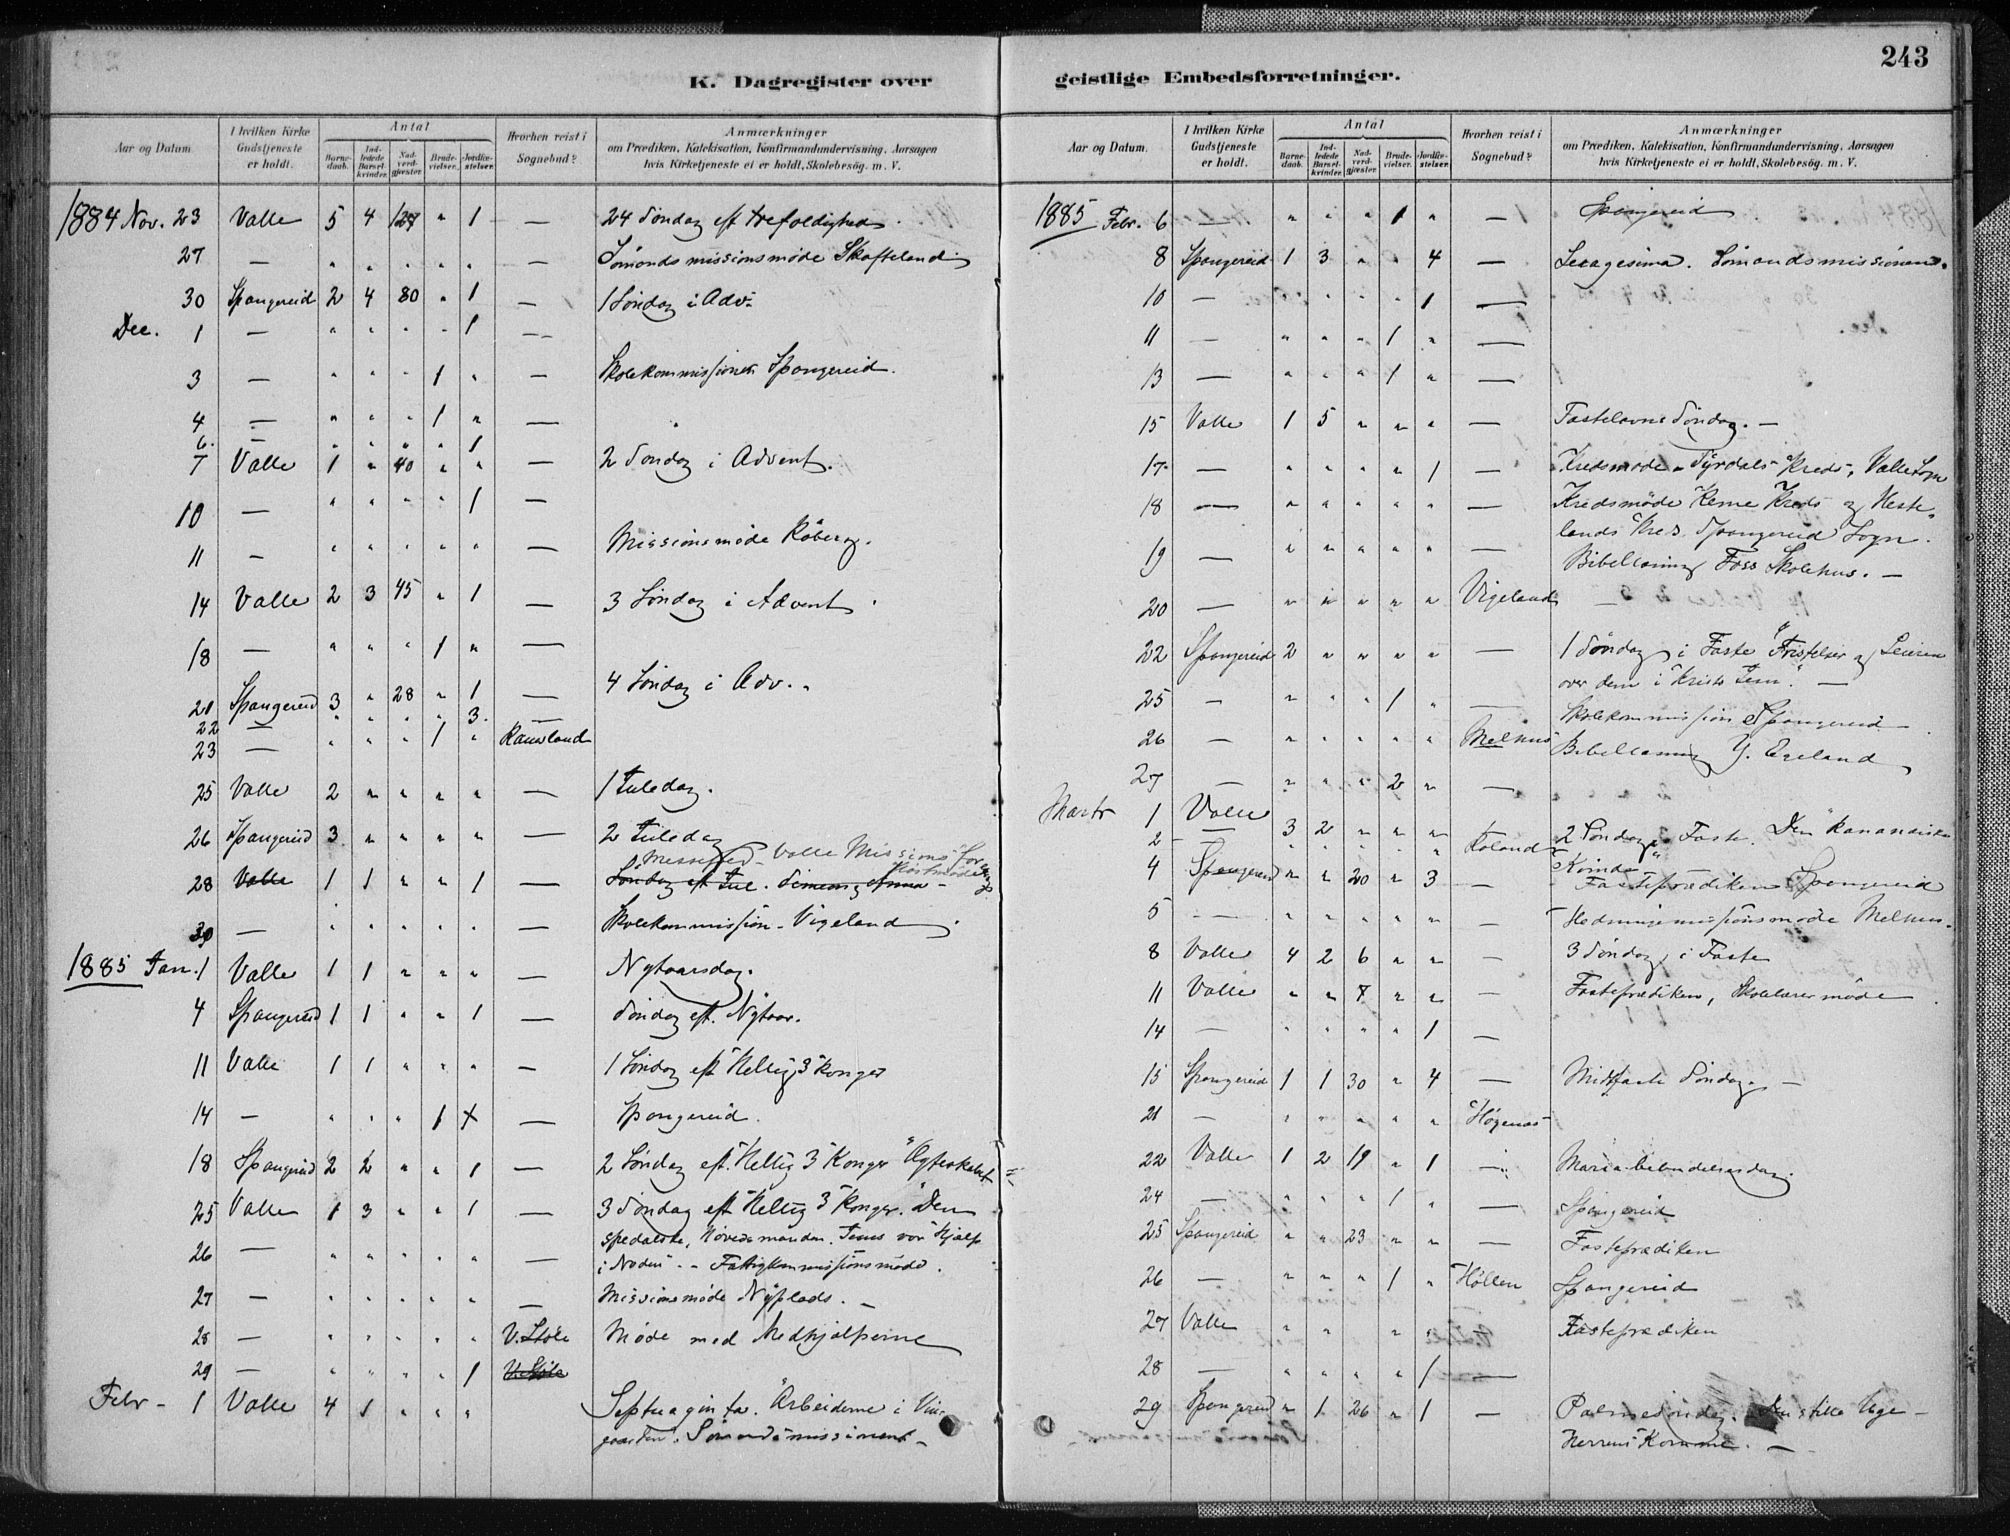 243
K. Dagregister over geistlige Embedsforretninger.
Aar og Datum. | I hvilken Kirke Gudstjeneste er holdt. | Antal | Barnedaab. | Indledede Barselkvinder. | Nadverdgjæster. | Brudevielser. | Jordfæstelser. | Hvorhen reist i Sognebud? | Anmærkninger om Prædiken, Katekisation, Konfirmandundervisning, Aarsagen hvis Kirketjeneste ei er holdt, Skolebesög. m. V.
1884 Nov. 23 Valle 5 4 „ 1 — 24 Söndag eft trefoldighed.
27 — „ „ „ „ „ — Sömandsmissionsmöde Skofteland
30 Spangereid 2 4 80 „ 1 — 1 Söndag i Adv.
Dec. 1 — „ „ „ „ 1 —
3 — „ „ „ 1 „ — Skolekommissionen Spangereid.
4 — „ „ „ 1 „ —
6. — „ „ „ „ 1
7 Valle 1 „ 40 „ „ — 2 Söndag i Advent.
10 — „ „ „ „ 1 —
11 — „ „ „ „ „ — Missionsmöde Röberg.
14 Valle 2 3 45 „ 1 — 3 Söndag i Advent.
18 — „ „ „ 1 „ —
21 Spangereid 3 „ 28 „ 1 — 4 Söndag i Adv.
22 — „ „ „ „ 3. —
23 — „ „ „ 1 „ Ramsland
25 Valle 2 „ „ „ „ — 1 Juledag.
26 Spangereid 3 „ „ „ „ — 2 Juledag
Messefred – Valle Missions
28 Valle 1 1 „ „ 1 — Söndag eft Jul. Simeon og Anna –
30 — „ „ „ „ „ — Skolekommission – Vigeland.
1885 Jan. 1 Valle 1 1 „ „ „ — Nytaarsdag.
4 Spangereid 1 1 „ „ 1 — Söndag eft. Nytaar.
11 Valle 1 1 „ „ „ — 1 Söndag eft Hellig 3 Konger
14 — „ „ „ 1 — Spangereid.
18 Spangereid 2 2 „ „ 1 — 2 Söndag eft. Hellig 3 Konger "Ægteskabet
25 Valle 1 3 „ „ 1 — 3 Söndag eft Hellig 3 Konger. "Den
spedalske, Hövedsmanden. Jesus vor Hjælp
26 — „ „ „ „ „ — i Nöden" – Fattigkommissionsmöde.
27 — „ „ „ „ „ — Missionsmöde Nyplads. –
28 — „ „ „ „ „ V. Stöle Möde med Medhjælperne
29 — „ „ „ „ 1 V. Stöle
Febr – 1 Valle 4 1 „ „ „ Septuaginta. "Arbeiderne i Vin-
gaarden". Sömandsmissionen –
Aar og Datum. | I hvilken Kirke Gudstjeneste er holdt. | Antal | Barnedaab. | Indledede Barselkvinder. | Nadverdgjæster. | Brudevielser. | Jordfæstelser. | Hvorhen reist i Sognebud? | Anmærkninger om Prædiken, Katekisation, Konfirmandundervisning, Aarsagen hvis Kirketjeneste ei er holdt, Skolebesög. m. V.
1885 Febr. 6 — „ „ „ 1 „ — Spangereid
8 Spangereid 1 3 „ „ 4 — Sexagesima. Sömandsmissionen.
10 — „ „ „ 1 —
11 — „ „ „ 1 „ —
13 — „ „ „ 1 „ —
15 Valle 1 5 „ „ „ — Fastelavns Söndag. –
17 — „ „ „ „ 1 — Kredsmöde – Syrdals Kreds, Valle Sogn
18 — „ „ „ „ „ — Kredsmöde Reme Kreds og Heste-
lands Kreds Spangereid Sogn.
19 — „ „ „ „ „ — Bibellæsning Foss Skolehus. –
20 — „ „ „ „ „ Vigeland —
22 Spangereid 2 „ „ „ „ — 1 Söndag i Faste "Fristelser og Seieren
over dem i Kristo Jesu". –
25 — „ „ „ 1 „ — Skolekommission Spangereid
26 — „ „ „ „ „ Melhus Bibellæsning Y. Egeland
27 — „ „ „ 2 „ —
Marts 1 Valle 3 2 „ „ „ 2 Söndag i Faste. Den "kananæiske
2 — „ „ „ „ „ Roland Kvinde"
4 Spangereid „ „ 20 „ 3 — Fasteprædiken Spangereid
5 — „ „ „ „ „ — Hedningemissionsmöde Melhus.
8 Valle 4 2 6 „ „ — 3 Söndag i Faste
11 Valle „ „ 7 „ „ — Fasteprædiken, Skolelærermöde
14 — „ „ „ „ 1 —
15 Spangereid 1 1 30 „ 4 — Midfaste Söndag. –
21 — „ „ „ „ „ Högenes
22 Valle 1 2 19 „ 1 — Maria bebudelsesdag.
24 — „ „ „ 1 „ — Spangereid
25 Spangereid „ „ 23 „ „ — Fasteprædiken
26 — „ „ „ 1 „ Höllen Spangereid
27 Valle „ „ „ „ — Fasteprædiken
28 — „ „ „ „ 1 —
29 Spangereid „ 1 26 „ 1 — Palmesöndag. Den stille Uge –
Herrens Komme. –